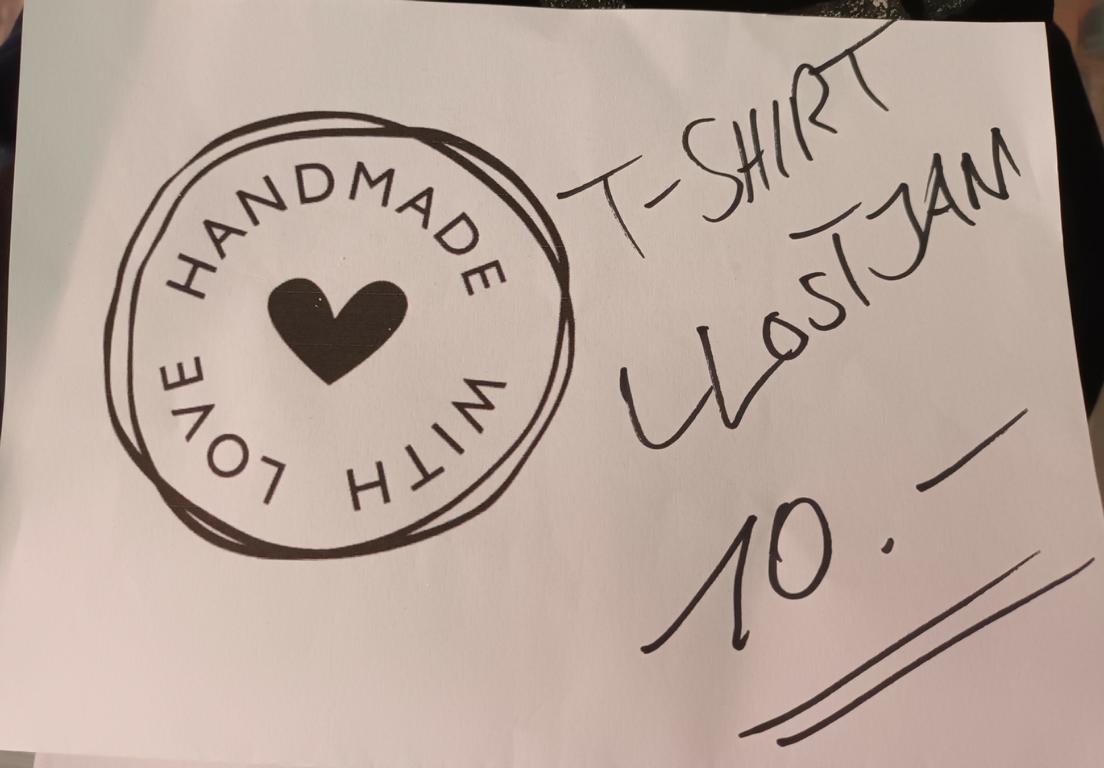 HANDMADE
WITH LOVE
T-SHIRT
LLOSTJAM
10.-